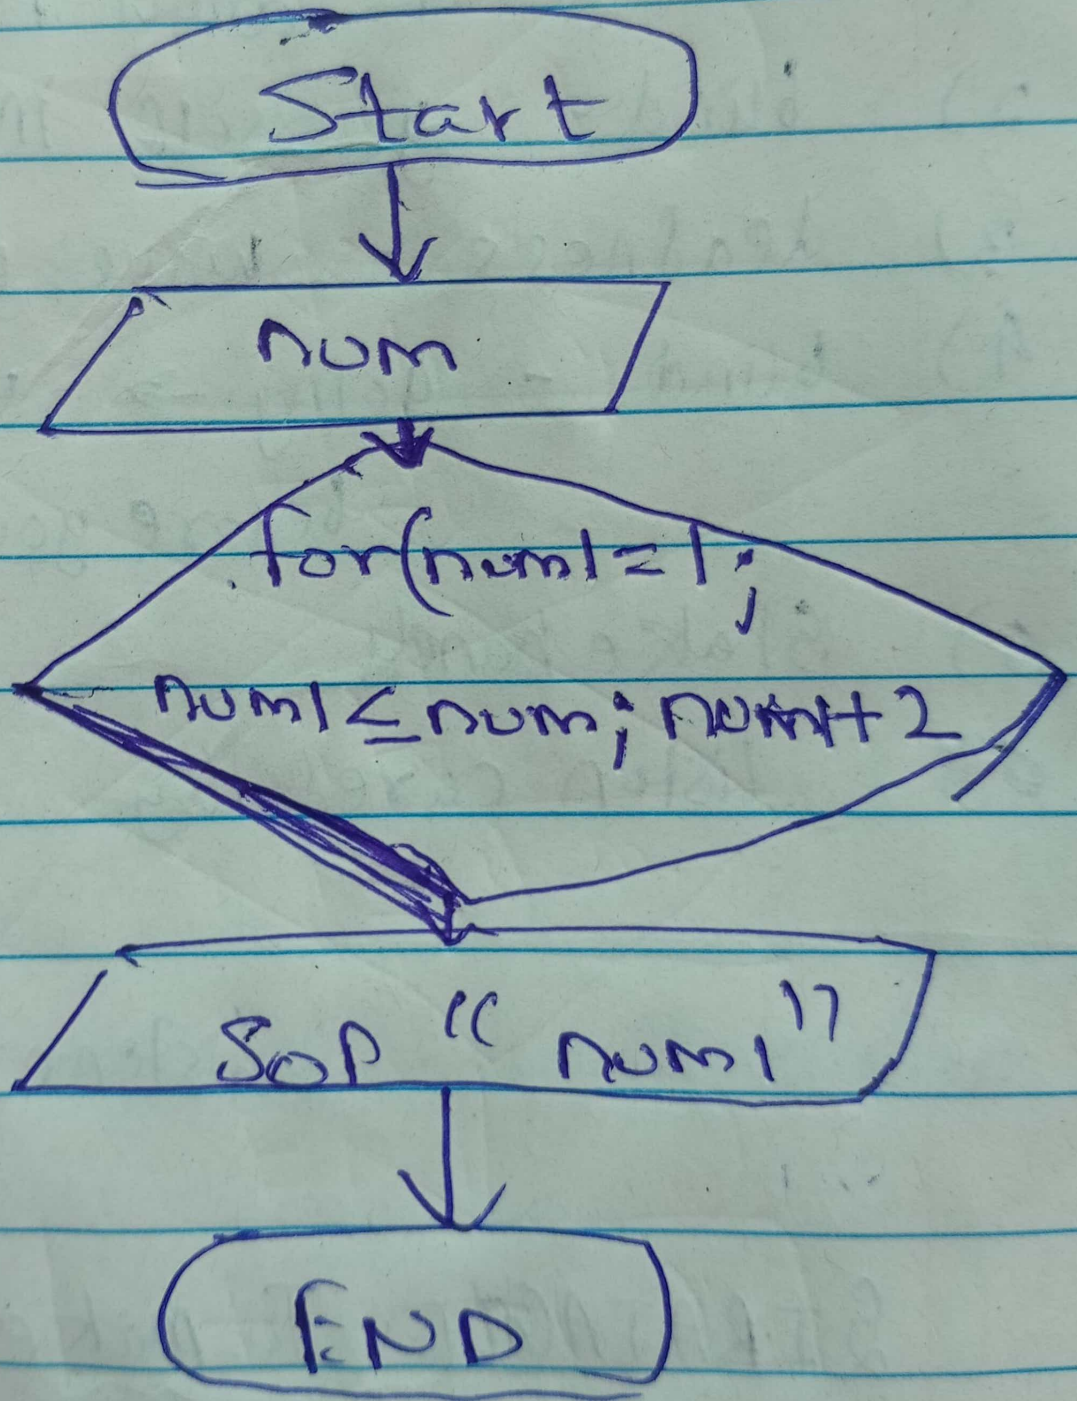 Start
num
for(num1=1;
num1≤num; num1+2
SOP "num1"
END